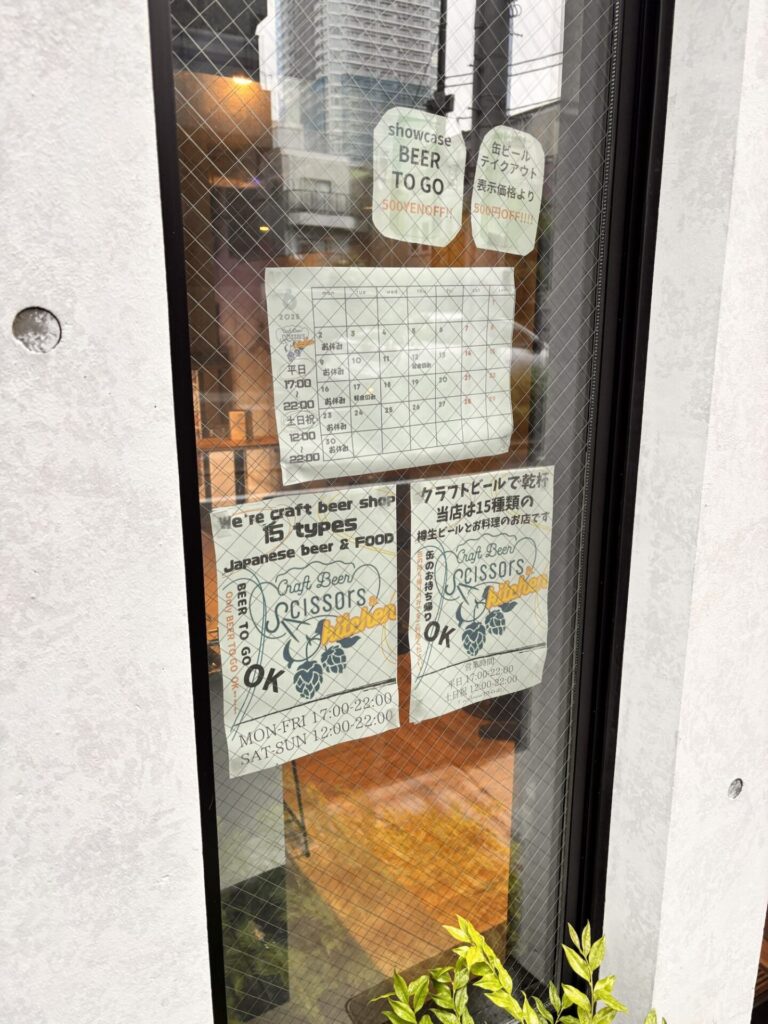 showcase
BEER
TO GO
500YENOFF!!
缶ビール
テイクアウト
表示価格より
500円OFF!!!!
2025
mon tue wed thu fri sat sun
1
2 3 4 5 6 7 8
お休み
9 10 11 12 13 14 15
お休み
16 17 18 19 20 21 22
お休み
23 24 25 26 27 28 29
お休み
30
お休み
平日
17:00
~
22:00
土日祝
12:00
~
22:00
We're craft beer shop
15 types
Japanese beer & FOOD
Craft Beer
SCISSORS
kitchen
BEER TO GO
Only BEER TO GO OK
OK
MON-FRI 17:00-22:00
SAT-SUN 12:00-22:00
クラフトビールで乾杯
当店は15種類の
樽生ビールとお料理のお店です
Craft Beer
SCISSORS
kitchen
缶のお持ち帰り
OK
営業時間
平日 17:00-22:00
土日祝 12:00-22:00